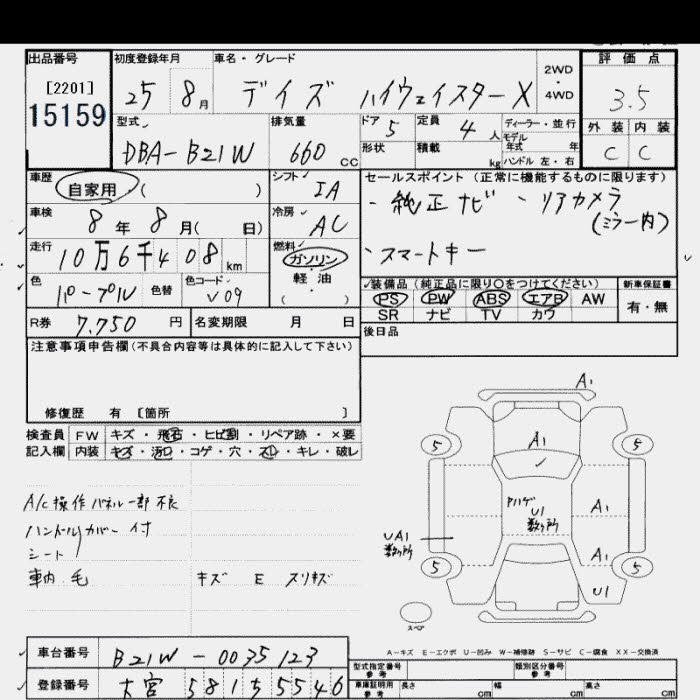 出品番号
[2201]
15159
初度登録年月
25 8月
車名・グレード
デイズ ハイウェイスターX
2WD
4WD
評価点
3.5
外装 内装
C C
型式
DBA-B21W
排気量
660 cc
ドア 5
定員 4人
形状
積載 kg
ディーラー・並行
モデル年式 年
ハンドル 左・右
車歴
自家用 ( )
シフト
IA
車検
8年 8月( 日)
冷房
AC
走行
10万6千408km
燃料
ガソリン
軽・油
( )
色
パープル
色替
色コード
V09
R券 7,750円
名変期限 月 日
セールスポイント(正常に機能するものに限ります)
・純正ナビ ・リアカメラ
(ミラー内)
・スマートキー
装備品(純正品に限り○をつけてください)
新車保証書
PS PW ABS エアB AW
有・無
SR ナビ TV カワ
後日品
注意事項申告欄(不具合内容等は具体的に記入して下さい)
修復歴 有 [箇所 ]
検査員 FW キズ・飛石・ヒビ割・リペア跡・×要
記入欄 内装 キズ・汚れ・コゲ・穴・スレ・キレ・破レ
A/C操作パネル一部不良
ハンドルカバー付
シート
車内 毛 キズ E スリキズ
A1
5 5
A1
A1
U1
数ヶ所
UA1
数ヶ所
A1
5 5
U1
スペア
A-キズ E-エクボ U-凹み W-補修跡 S-サビ C-腐食 XX-交換済
車台番号 B21W-0035123
登録番号 大宮 581 5546
型式指定番号
参考
類別区分番号
参考
車庫証明用
参考
長さ cm 幅 cm 高さ cm